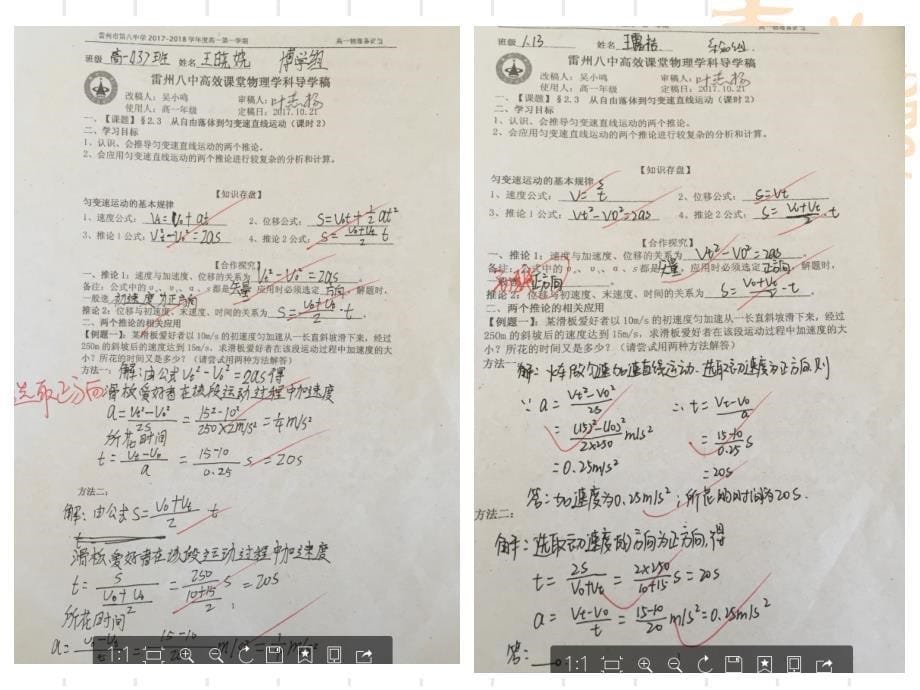 雷州市第八中学 2017-2018 学年度高一第一学期
班级 高一037班 姓名 博学组
雷州八中高效课堂物理学科导学稿
改稿人：吴小鸣 审稿人：叶志扬
使用人：高一年级 定稿日：2017.10.21
一、【课题】§2.3 从自由落体到匀变速直线运动（课时2）
二、学习目标
1、认识、会推导匀变速直线运动的两个推论。
2、会应用匀变速直线运动的两个推论进行较复杂的分析和计算。
【知识存盘】
匀变速运动的基本规律
1、速度公式：Vt=V0+at 2、位移公式：S=V0t+1/2at²
3、推论1公式：Vt²-V0²=2as 4、推论2公式：S=(V0+Vt)/2 t
【合作探究】
一、推论1：速度与加速度、位移的关系为 Vt²-V0²=2as
备注：公式中的υ、υ、a、s都是矢量，应用时必须选定方向，解题时，
一般选初速度为正方向
推论2：位移与初速度、末速度、时间的关系为 S=(V0+Vt)/2·t.
二、两个推论的相关应用
【例题一】：某滑板爱好者以10m/s的初速度匀加速从一长直斜坡滑下来，经过
250m的斜坡后的速度达到15m/s，求滑板爱好者在该段运动过程中加速度的大
小？所花的时间又是多少？（请尝试用两种方法解答）
方法一：解：由公式Vt²-V0²=2as得
选取正方向
滑板爱好者在该段运动过程中加速度
a=(Vt²-V0²)/2S=(15²-10²)/(250×2)m/s²=1/4m/s²
所花时间
t=(Vt-V0)/a=(15-10)/0.25 s=20s
方法二：
解：由公式S=(V0+Vt)/2 t
滑板爱好者在该段运动过程中加速度
t=S/((V0+Vt)/2)=250/((10+15)/2)s=20s
所花时间
1:1
班级 1.13 姓名
雷州八中高效课堂物理学科导学稿
改稿人：吴小鸣 审稿人：叶志扬
使用人：高一年级 定稿日：2017.10.21
一、【课题】§2.3 从自由落体到匀变速直线运动（课时2）
二、学习目标
1、认识、会推导匀变速直线运动的两个推论。
2、会应用匀变速直线运动的两个推论进行较复杂的分析和计算。
【知识存盘】
匀变速运动的基本规律
1、速度公式：V=S/t 2、位移公式：S=Vt
3、推论1公式：Vt²-V0²=2as 4、推论2公式：S=(V0+Vt)/2·t
【合作探究】
一、推论1：速度与加速度、位移的关系为 Vt²-V0²=2as
备注：公式中的υ、υ、a、s都是矢量，应用时必须选定正方向，解题时，
正方向
推论2：位移与初速度、末速度、时间的关系为 S=(V0+Vt)/2·t
二、两个推论的相关应用
【例题一】：某滑板爱好者以10m/s的初速度匀加速从一长直斜坡滑下来，经过
250m的斜坡后的速度达到15m/s，求滑板爱好者在该段运动过程中加速度的大
小？所花的时间又是多少？（请尝试用两种方法解答）
方法一：解：做匀速加速直线运动.选取运动速度为正方向则
∵a=(Vt²-V0²)/2S ∴t=(Vt-V0)/a
=((15)²-(10)²)/(2×250)m/s² =(15-10)/0.25 s
=0.25m/s² =20s
答：加速度为0.25m/s²；所花的时间为20s.
方法二：
解：选取运动速度的方向为正方向,得
t=2S/(V0+Vt)=(2×250)/(10+15)s=20s
a=(Vt-V0)/t=(15-10)/20 m/s²=0.25m/s²
答：
1:1